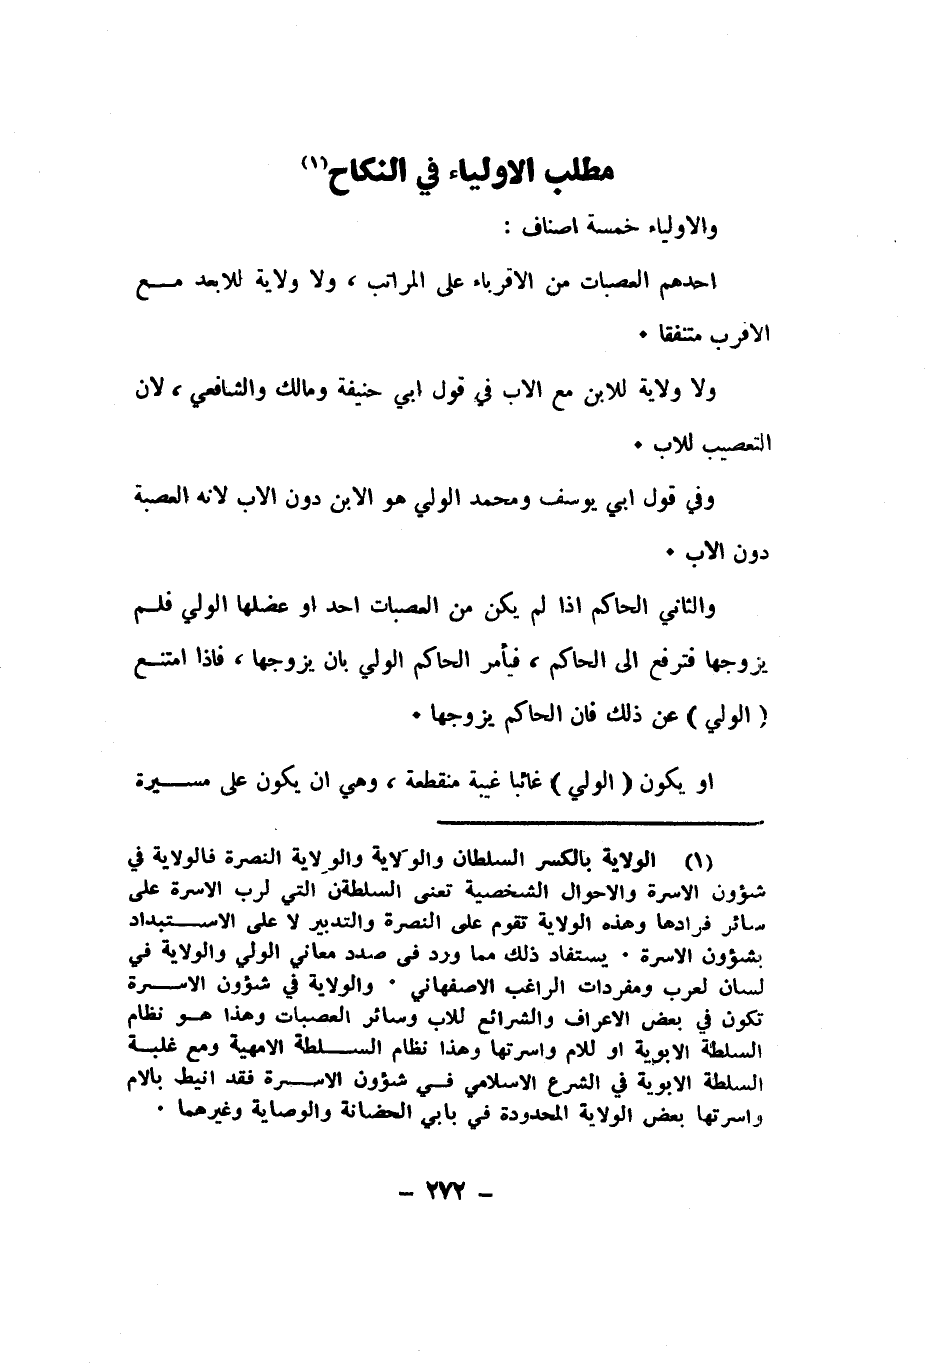 مطلب الاولياء في النكاح(١)
والاولياء خمسة اصناف :
احدهم العصبات من الاقرباء على المراتب ، ولا ولاية للابعد مـــع
الاقرب متفقا •
ولا ولاية للابن مع الاب في قول ابي حنيفة ومالك والشافعي ، لان
التعصيب للاب •
وفي قول ابي يوسف ومحمد الولي هو الابن دون الاب لانه العصبة
دون الاب •
والثاني الحاكم اذا لم يكن من العصبات احد او عضلها الولي فلـم
يزوجها فترفع الى الحاكم ، فيأمر الحاكم الولي بان يزوجها ، فاذا امتنـع
( الولي ) عن ذلك فان الحاكم يزوجها •
او يكون ( الولي ) غائبا غيبة منقطعة ، وهي ان يكون على مســـيرة
(١) الولاية بالكسر السلطان والوَلاية والوِلاية النصرة فالولاية في
شؤون الاسرة والاحوال الشخصية تعنى السلطةن التي لرب الاسرة على
سائر فرادها وهذه الولاية تقوم على النصرة والتدبير لا على الاســـتبداد
بشؤون الاسرة • يستفاد ذلك مما ورد فى صدد معاني الولي والولاية في
لسان لعرب ومفردات الراغب الاصفهاني • والولاية في شؤون الاســـرة
تكون في بعض الاعراف والشرائع للاب وسائر العصبات وهذا هــو نظام
السلطة الابوية او للام واسرتها وهذا نظام الســـلطة الامهية ومع غلبــة
السلطة الابوية في الشرع الاسلامي فــي شؤون الاســـرة فقد انيط بالام
واسرتها بعض الولاية المحدودة في بابي الحضانة والوصاية وغيرهما •
– ٢٧٢ –